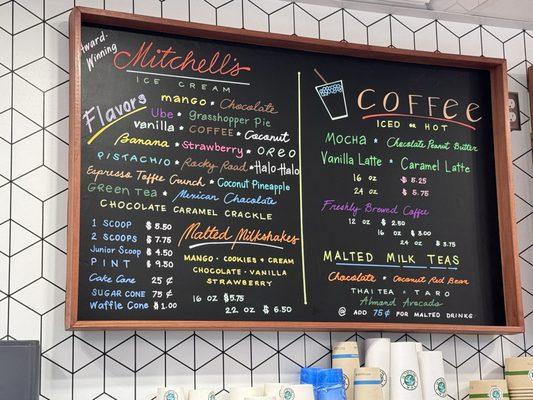 Award-Winning
Mitchell's
ICE CREAM
Flavors
mango * Chocolate
Ube * Grasshopper Pie
vanilla * COFFEE * Coconut
Banana * Strawberry * OREO
PISTACHIO * Rocky Road * Halo-Halo
Espresso Toffee Crunch * Coconut Pineapple
Green Tea * Mexican Chocolate
CHOCOLATE CARAMEL CRACKLE
1 SCOOP $5.50
2 SCOOPS $7.75
Junior Scoop $4.50
PINT $9.50
Cake Cone 25¢
SUGAR CONE 75¢
Waffle Cone $1.00
Malted Milkshakes
MANGO · COOKIES & CREAM
CHOCOLATE · VANILLA
STRAWBERRY
16 OZ $5.75
22 OZ $6.50
COFFEE
ICED OR HOT
MOCHA * Chocolate Peanut Butter
Vanilla Latte * Caramel Latte
16 oz $5.25
24 oz $5.75
Freshly Brewed Coffee
12 oz $2.50
16 oz $3.00
24 oz $3.75
MALTED MILK TEAS
Chocolate * Coconut Red Bean
THAI TEA * TARO
Almond Avocado
@ ADD 75¢ FOR MALTED DRINKS